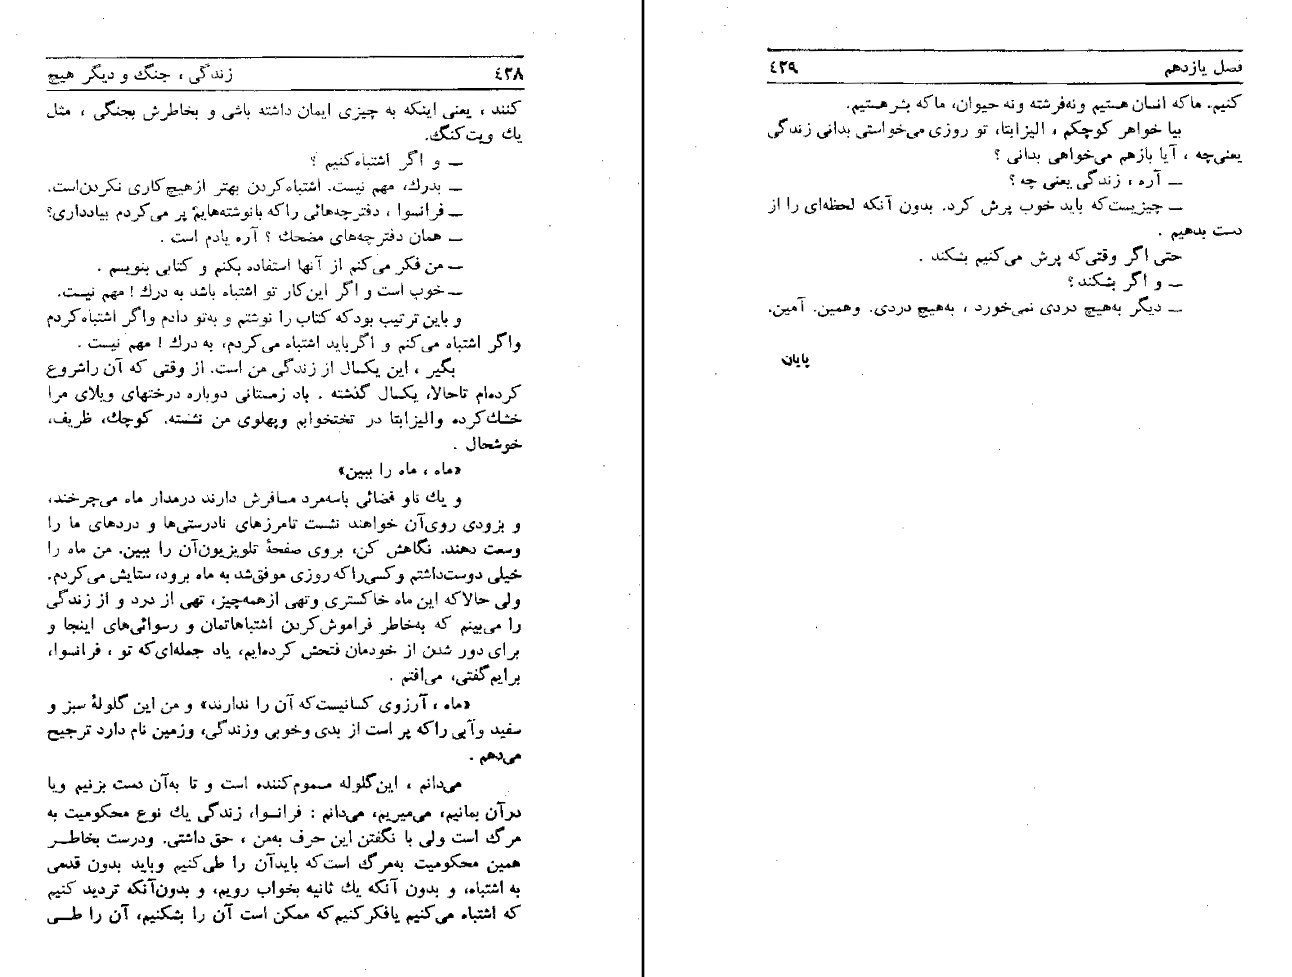 ٤٣٨ زندگی ، جنگ و دیگر هیچ
کنند ، یعنی اینکه به چیزی ایمان داشته باشی و بخاطرش بجنگی ، مثل
یك ویت‌کنگ.
ــ و اگر اشتباه‌کنیم ؟
ــ بدرك، مهم نیست. اشتباه‌کردن بهتر ازهیچ‌کاری نکردن‌است.
ــ فرانسوا ، دفترچه‌هائی راکه بانوشته‌هایم پر می‌کردم بیادداری؟
ــ همان دفترچه‌های مضحك ؟ آره یادم است .
ــ من فکر می‌کنم از آنها استفاده بکنم و کتابی بنویسم .
ــ خوب است و اگر این‌کار تو اشتباه باشد به درك ! مهم نیست.
و باین ترتیب بودکه کتاب را نوشتم و به‌تو دادم واگر اشتباه‌کردم
واگر اشتباه می‌کنم و اگرباید اشتباه می‌کردم، به درك ! مهم نیست .
بگیر ، این یکسال از زندگی من است. از وقتی که آن راشروع
کرده‌ام تاحالا، یکسال گذشته . باد زمستانی دوباره درختهای ویلای مرا
خشك‌کرده والیزابتا در تختخوابم وپهلوی من نشسته. کوچك، ظریف،
خوشحال .
«ماه ، ماه را ببین»
و یك ناو فضائی باسه‌مرد مسافرش دارند درمدار ماه می‌چرخند،
و بزودی روی‌آن خواهند نشست تامرزهای نادرستی‌ها و دردهای ما را
وسعت دهند. نگاهش کن، بروی صفحهٔ تلویزیون‌آن را ببین. من ماه را
خیلی دوست‌داشتم وکسی‌راکه روزی موفق‌شد به ماه برود، ستایش می‌کردم.
ولی حالاکه این ماه خاکستری وتهی ازهمه‌چیز، تهی از درد و از زندگی
را می‌بینم که به‌خاطر فراموش‌کردن اشتباهاتمان و رسوائی‌های اینجا و
برای دور شدن از خودمان فتحش کرده‌ایم، یاد جمله‌ای‌که تو ، فرانسوا،
برایم‌گفتی، می‌افتم .
«ماه ، آرزوی کسانیست‌که آن را ندارند» و من این گلولهٔ سبز و
سفید وآبی راکه پر است از بدی وخوبی وزندگی، وزمین نام دارد ترجیح
می‌دهم .
می‌دانم ، این‌گلوله مسموم‌کننده است و تا به‌آن دست بزنیم ویا
درآن بمانیم، می‌میریم، می‌دانم : فرانسوا، زندگی یك نوع محکومیت به
مرگ است ولی با نگفتن این حرف به‌من ، حق داشتی. ودرست بخاطر
همین محکومیت به‌مرگ است‌که بایدآن را طی‌کنیم وباید بدون قدمی
به اشتباه، و بدون آنکه یك ثانیه بخواب رویم، و بدون‌آنکه تردید کنیم
که اشتباه می‌کنیم یافکرکنیم‌که ممکن است آن را بشکنیم، آن را طی
فصل یازدهم ٤٣٩
کنیم. ماکه انسان هستیم ونه‌فرشته ونه حیوان، ماکه بشرهستیم.
بیا خواهر کوچکم ، الیزابتا، تو روزی می‌خواستی بدانی زندگی
یعنی‌چه ، آیا بازهم می‌خواهی بدانی ؟
ــ آره ، زندگی یعنی چه ؟
ــ چیزیست‌که باید خوب پرش کرد. بدون آنکه لحظه‌ای را از
دست بدهیم .
حتی اگر وقتی‌که پرش می‌کنیم بشکند .
ــ و اگر بشکند ؟
ــ دیگر به‌هیچ دردی نمی‌خورد ، به‌هیچ دردی. وهمین. آمین.
پایان